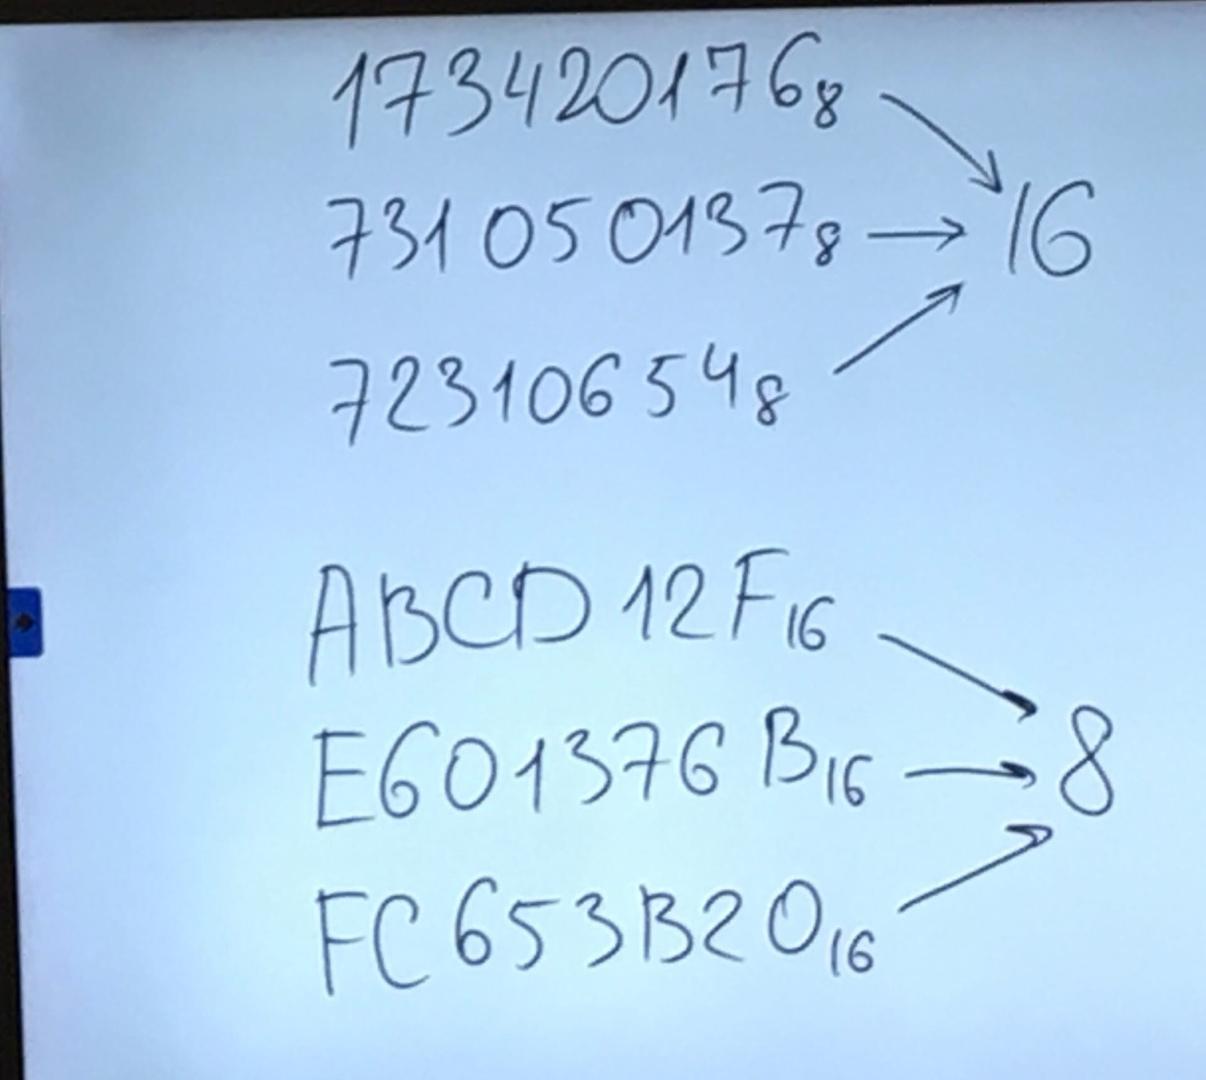 173420176₈
731050137₈ → 16
72310654₈
ABCD12F₁₆
E601376B₁₆ → 8
FC653B20₁₆